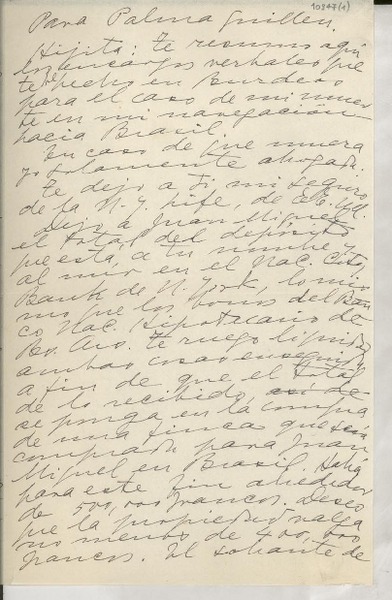 10847(1)
Para Palma Guillen.
Hijita: te resumo aquí
los encargos verbales que
te he hecho en Burdeos
para el caso de mi muer-
te en mi navegación
hacia Brasil.
En caso de que muera
yo solamente ahogada:
Te dejo a ti mi seguro
de la N. Y. Life, de EE. UU.
Dejo a Juan Miguel
el total del depósito
que está a tu nombre y
al mío en el Nac. City
Bank de N. York, lo mis-
mo que los bonos del Ban-
co Nac. Hipotecario de
Bs. As. Te ruego liquidar
ambas cosas enseguida
a fin de que el total
de lo recibido,
se ponga en la compra
de una finca que
comprada para Juan
Miguel en Brasil. Ha
para este fin alrededor
de 500,000 francos. Deseo
que la propiedad valga
no menos de 400,000
francos. El sobrante de